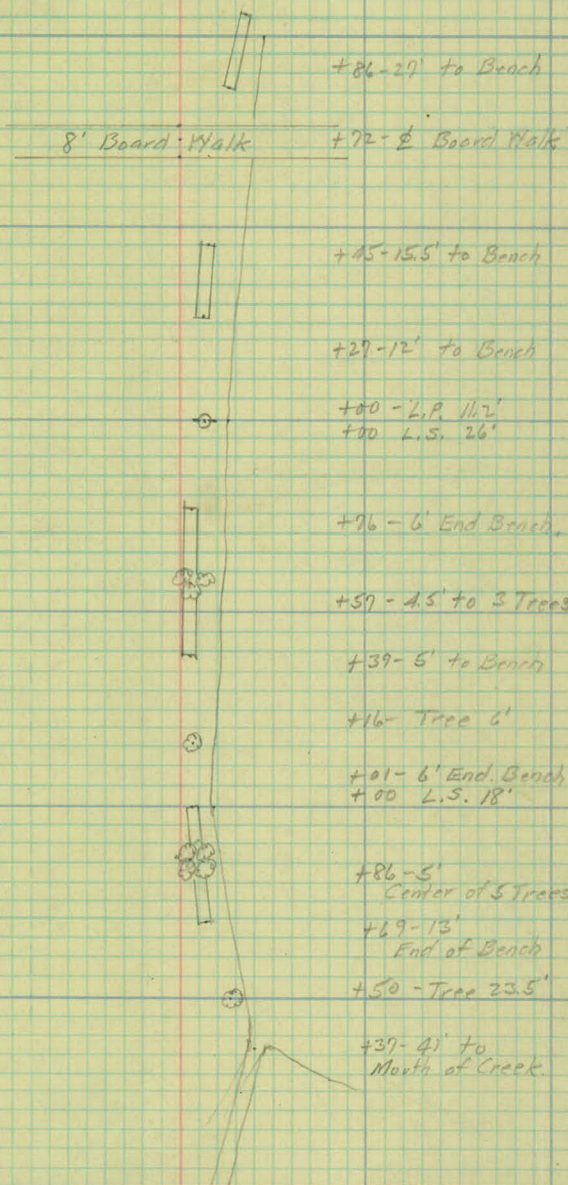 +86-27' to Bench
8' Board Walk
+72-₵ Board Walk
+45-15.5' to Bench
+27-12' to Bench
+00 - L.P. 11.2'
+00 L.S. 26'
+76 - 6' End Bench.
+57-4.5' to 3 Trees
+39-5' to Bench
+16- Tree 6'
+01-6' End. Bench
+00 L.S. 18'
+86-5'
Center of 5 Trees
+69-13'
End of Bench
+50-Tree 23.5'
+37-41' to
Mouth of Creek.